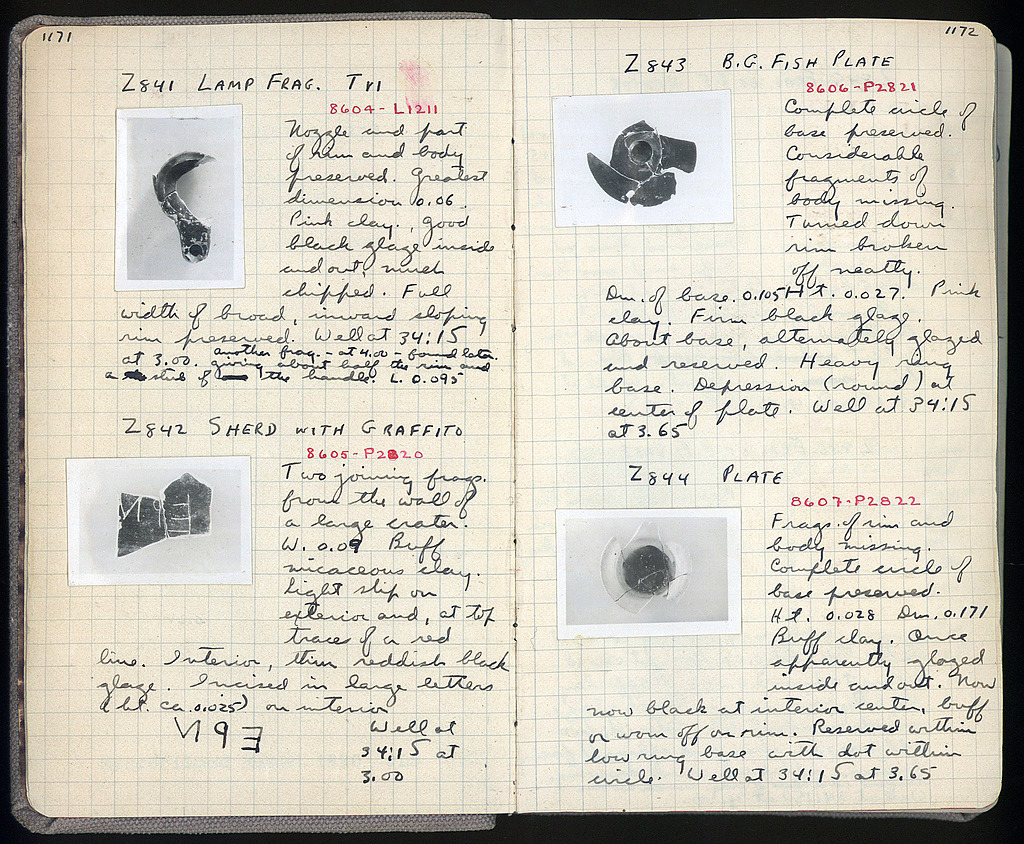 1171
Z841 LAMP FRAG. T VI
8604 - L1211
Nozzle and part
of rim and body
preserved. Greatest
dimension 0.06.
Pink clay., good
black glaze inside
and out, much
chipped. Full
width of broad, inward sloping
rim preserved. Well at 34:15
at 3.00. another frag. - at 4.00 - found later.
giving about half the rim and
a stub of the handle. L. 0.095
Z842 SHERD WITH GRAFFITO
8605-P2820
Two joining frags.
from the wall of
a large crater.
W. 0.09 Buff
micaceous clay.
Light slip on
exterior and, at top
traces of a red
line. Interior, thin reddish black
glaze. Incised in large letters
(ht. ca. 0.025) on interior
Well at
34:15 at
3.00
1172
Z843 B.G. FISH PLATE
8606-P2821
Complete circle of
base preserved.
Considerable
fragments of
body missing.
Turned down
rim broken
off neatly.
Dm. of base. 0.105 Ht. 0.027. Pink
clay. Firm black glaze.
About base, alternately glazed
and reserved. Heavy ring
base. Depression (round) at
center of plate. Well at 34:15
at 3.65
Z844 PLATE
8607-P2822
Frags. of rim and
body missing.
Complete circle of
base preserved.
Ht. 0.028 Dm. 0.171
Buff clay. Once
apparently glazed
inside and out. Now
now black at interior center, buff
or worn off on rim. Reserved within
low ring base with dot within
circle. Well at 34:15 at 3.65